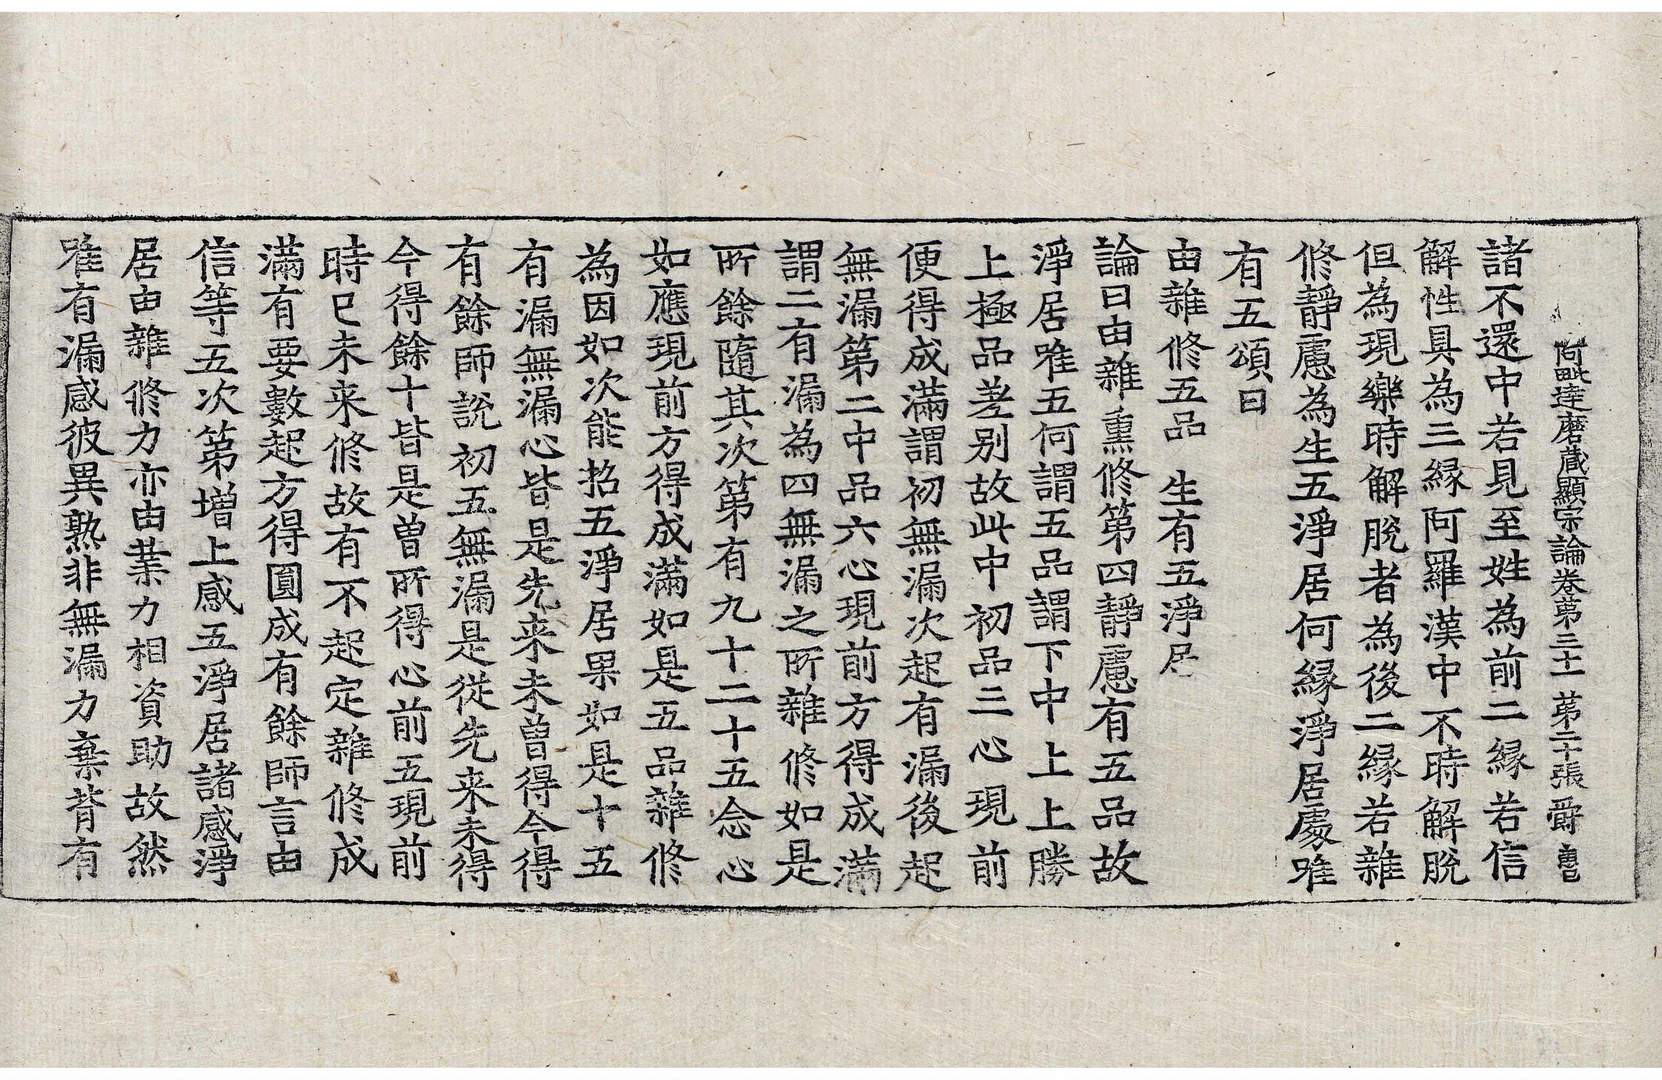 阿毗達磨藏顯宗論卷第三十一 第二十張 爵
諸不還中若見至姓為前二緣若信
解性具為三緣阿羅漢中不時解脫
但為現樂時解脫者為後二緣若雜
修靜慮為生五淨居何緣淨居處唯
有五頌曰
由雜修五品 生有五淨居
論曰由雜熏修第四靜慮有五品故
淨居唯五何謂五品謂下中上上勝
上極品差別故此中初品三心現前
便得成滿謂初無漏次起有漏後起
無漏第二中品六心現前方得成滿
謂二有漏為四無漏之所雜修如是
所餘隨其次第有九十二十五念心
如應現前方得成滿如是五品雜修
為因如次能招五淨居果如是十五
有漏無漏心皆是先來未曾得今得
有餘師說初五無漏是從先來未得
今得餘十皆是曾所得心前五現前
時已未來修故有不起定雜修成
滿有要數起方得圓成有餘師言由
信等五次第增上感五淨居諸感淨
居由雜修力亦由業力相資助故然
唯有漏感彼異熟非無漏力棄背有